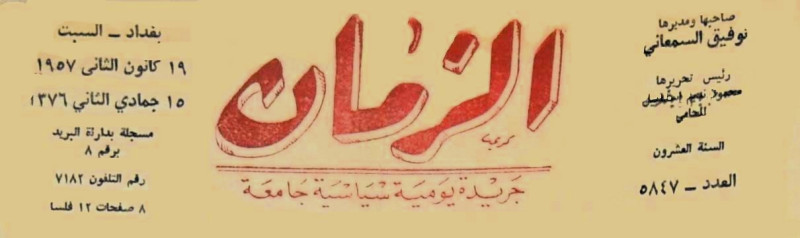 صاحبها ومديرها
توفيق السمعاني
رئيس تحريرها
محمود
المحامي
السنة العشرون
العدد ــ ٥٨٤٧
الزمان
جريدة يومية سياسية جامعة
بغداد ــ السبت
١٩ كانون الثاني ١٩٥٧
١٥ جمادي الثاني ١٣٧٦
مسجلة بدائرة البريد
برقم ٨
رقم التلفون ٧١٨٢
٨ صفحات ١٢ فلسا